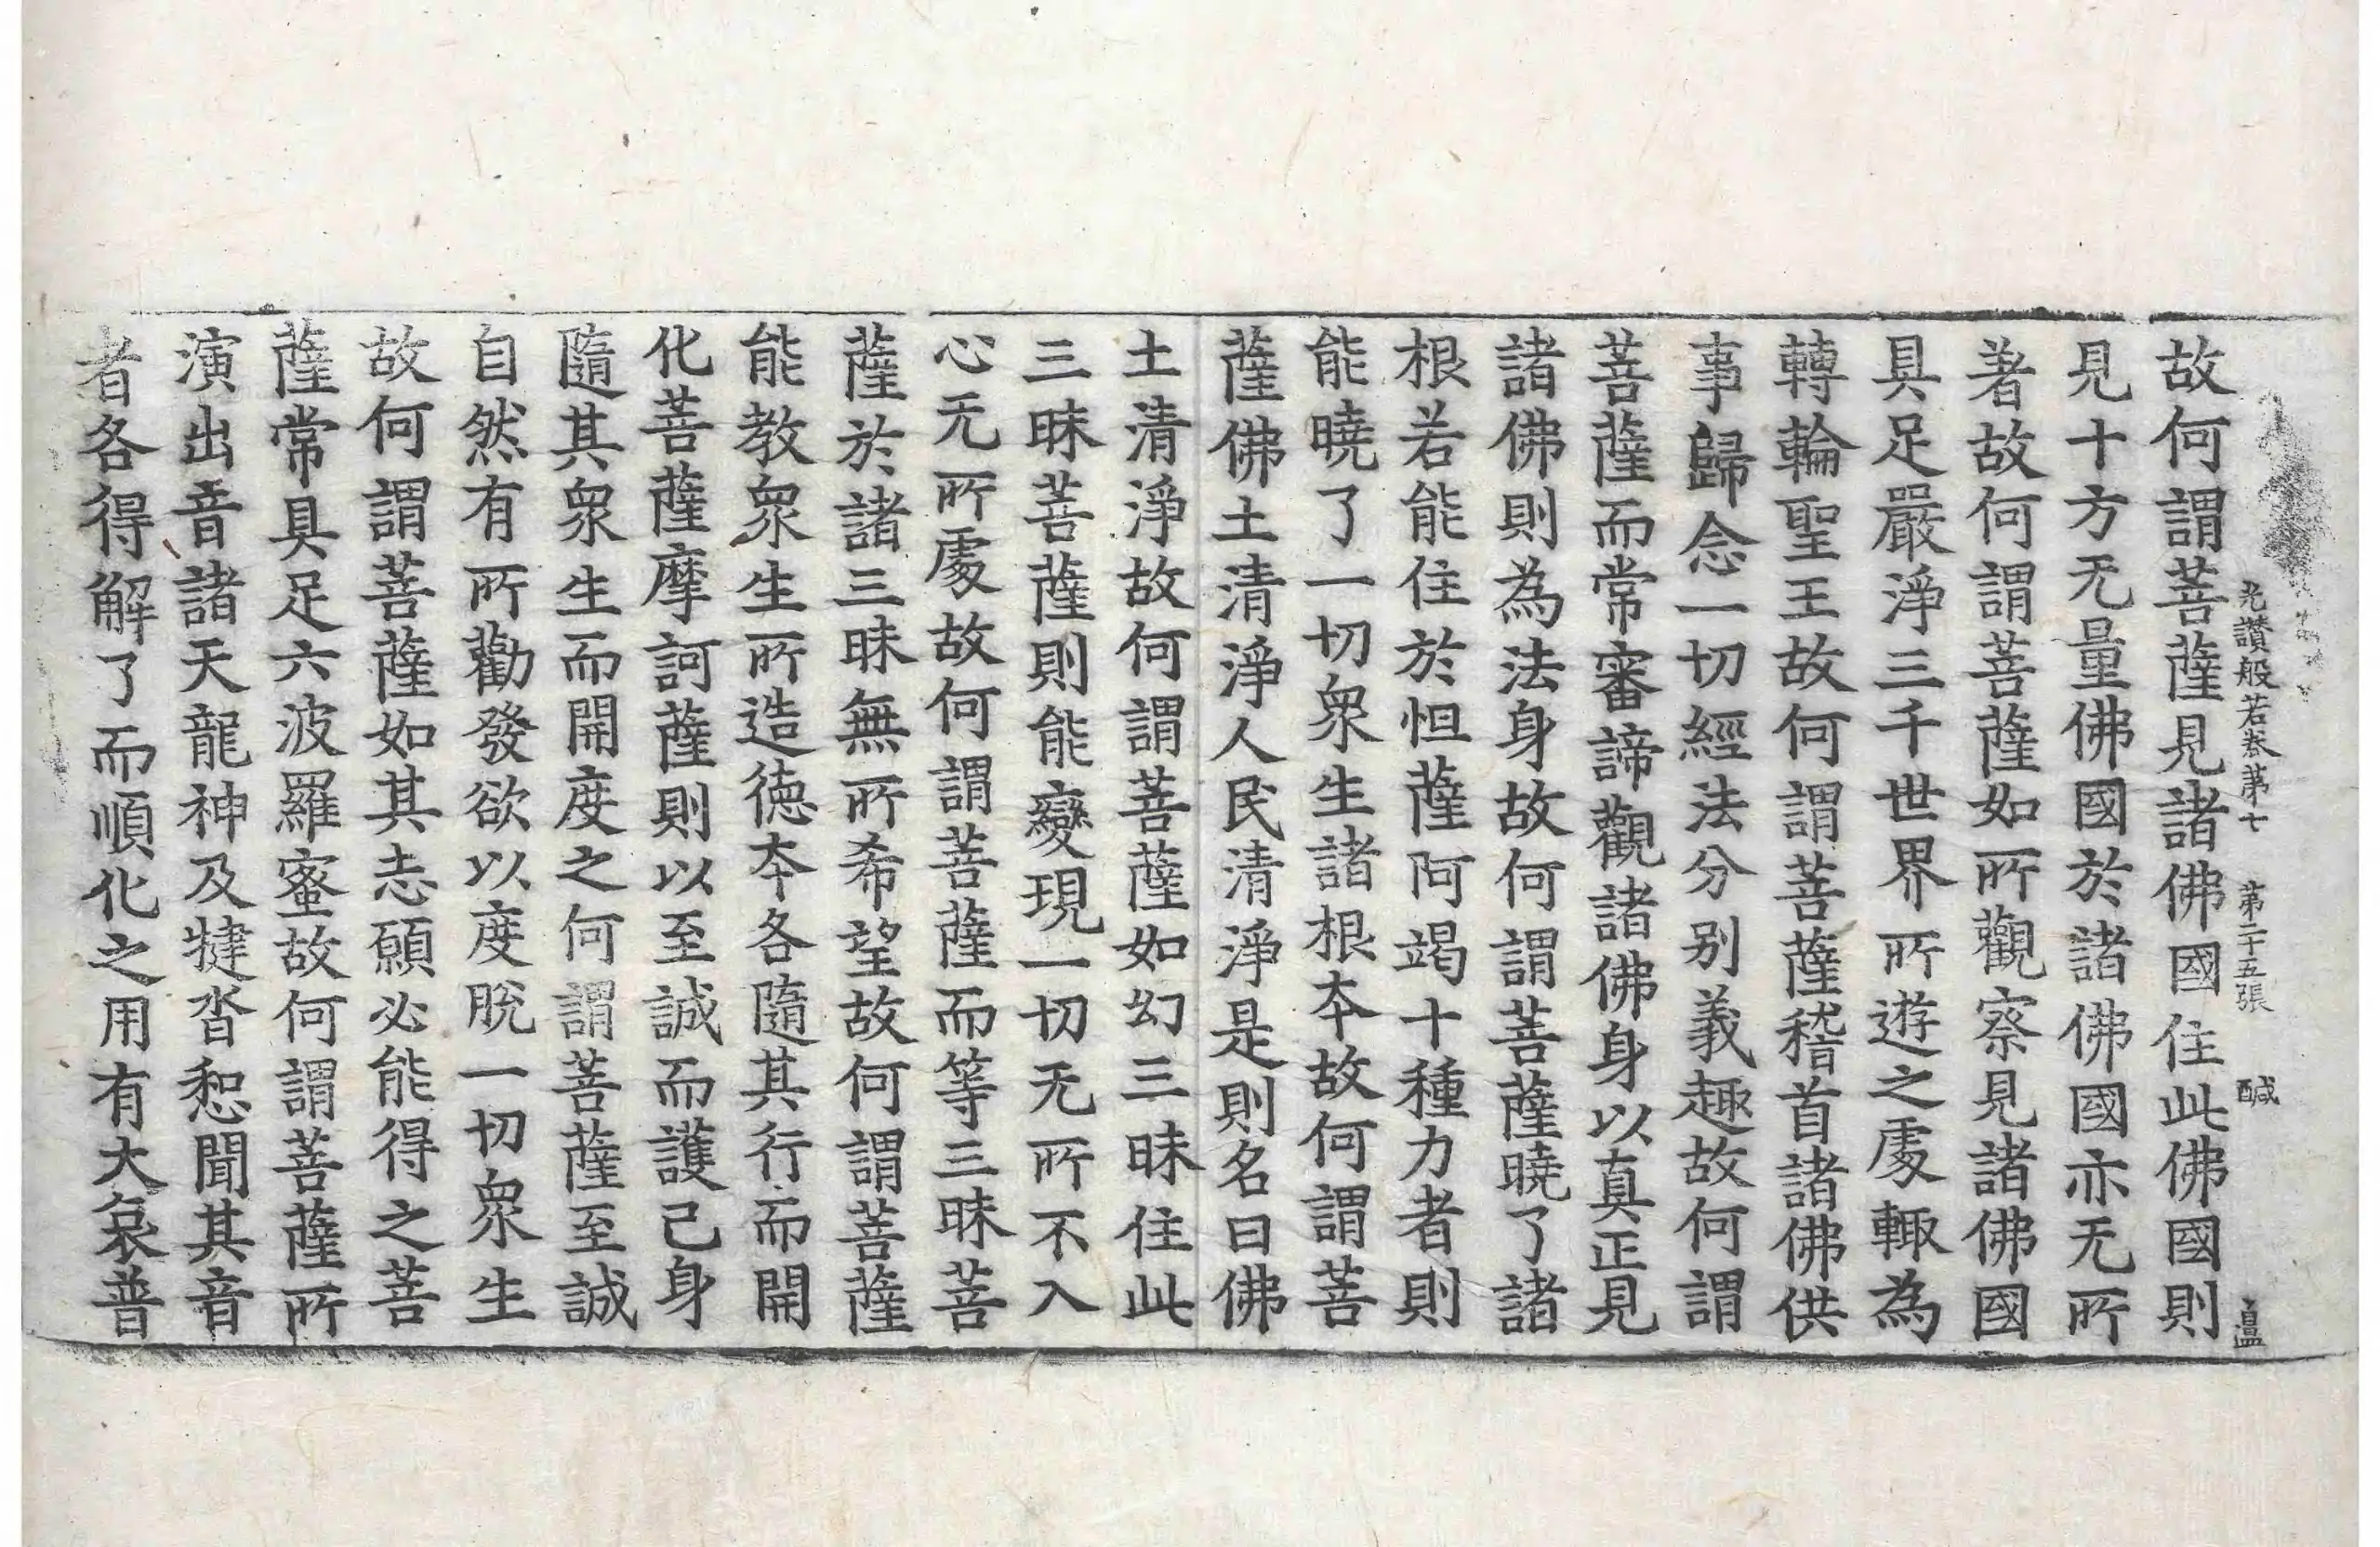 光讃般若卷第七 第二十五張 醎 昷
故何謂菩薩見諸佛國住此佛國則
見十方无量佛國於諸佛國亦无所
著故何謂菩薩如所觀察見諸佛國
具足嚴淨三千世界所遊之處輙為
轉輪聖王故何謂菩薩稽首諸佛供
事歸念一切經法分别義趣故何謂
菩薩而常審諦觀諸佛身以真正見
諸佛則為法身故何謂菩薩曉了諸
根若能住於怛薩阿竭十種力者則
能曉了一切衆生諸根夲故何謂菩
薩佛土清淨人民清淨是則名曰佛
土清淨故何謂菩薩如幻三昧住此
三昧菩薩則能變現一切无所不入
心无所處故何謂菩薩而等三昧菩
薩於諸三昧無所希望故何謂菩薩
能教衆生所造德夲各隨其行而開
化菩薩摩訶薩則以至誠而護己身
隨其衆生而開度之何謂菩薩至誠
自然有所勸發欲以度脫一切衆生
故何謂菩薩如其志願必能得之菩
薩常具足六波羅蜜故何謂菩薩所
演出音諸天龍神及揵沓惒聞其音
者各得解了而順化之用有大哀普